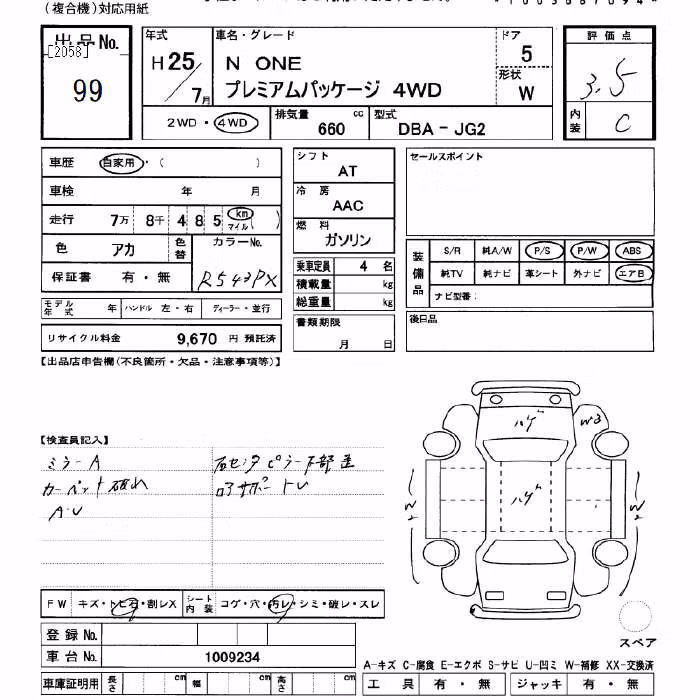 (複合機)対応用紙
出品No.
[2058]
99
年式
H25/7月
車名・グレード
N ONE
プレミアムパッケージ 4WD
ドア
5
形状
W
評価点
3.5
内装
C
2WD・4WD
排気量 cc
660
型式
DBA - JG2
車歴 自家用・( )
車検 年 月
走行 7万 8千 4 8 5 km マイル( )
色 アカ 色替 カラーNo.
R543PX
保証書 有・無
モデル年式 年 ハンドル 左・右 ディーラー・並行
リサイクル料金 9,670 円 預託済
シフト
AT
冷房
AAC
燃料
ガソリン
乗車定員 4 名
積載量 kg
総重量 kg
書類期限
月 日
セールスポイント
装備品
S/R 純A/W P/S P/W ABS
純TV 純ナビ 革シート 外ナビ エアB
ナビ型番:
後日品
【出品店申告欄(不良箇所・欠品・注意事項等)】
【検査員記入】
ミラーA
カーペット破れ
A・U
右センターピラー下部
ロアサポートU
ハゲ
W3
ハゲ
W2
W2
FW キズ・トビ石・割レX シート内装 コゲ・穴・汚レ・シミ・破レ・スレ
登録No.
車台No. 1009234
車庫証明用 長さ cm 幅 cm 高さ cm
スペア
A-キズ C-腐食 E-エクボ S-サビ U-凹ミ W-補修 XX-交換済
工具 有・無 ジャッキ 有・無